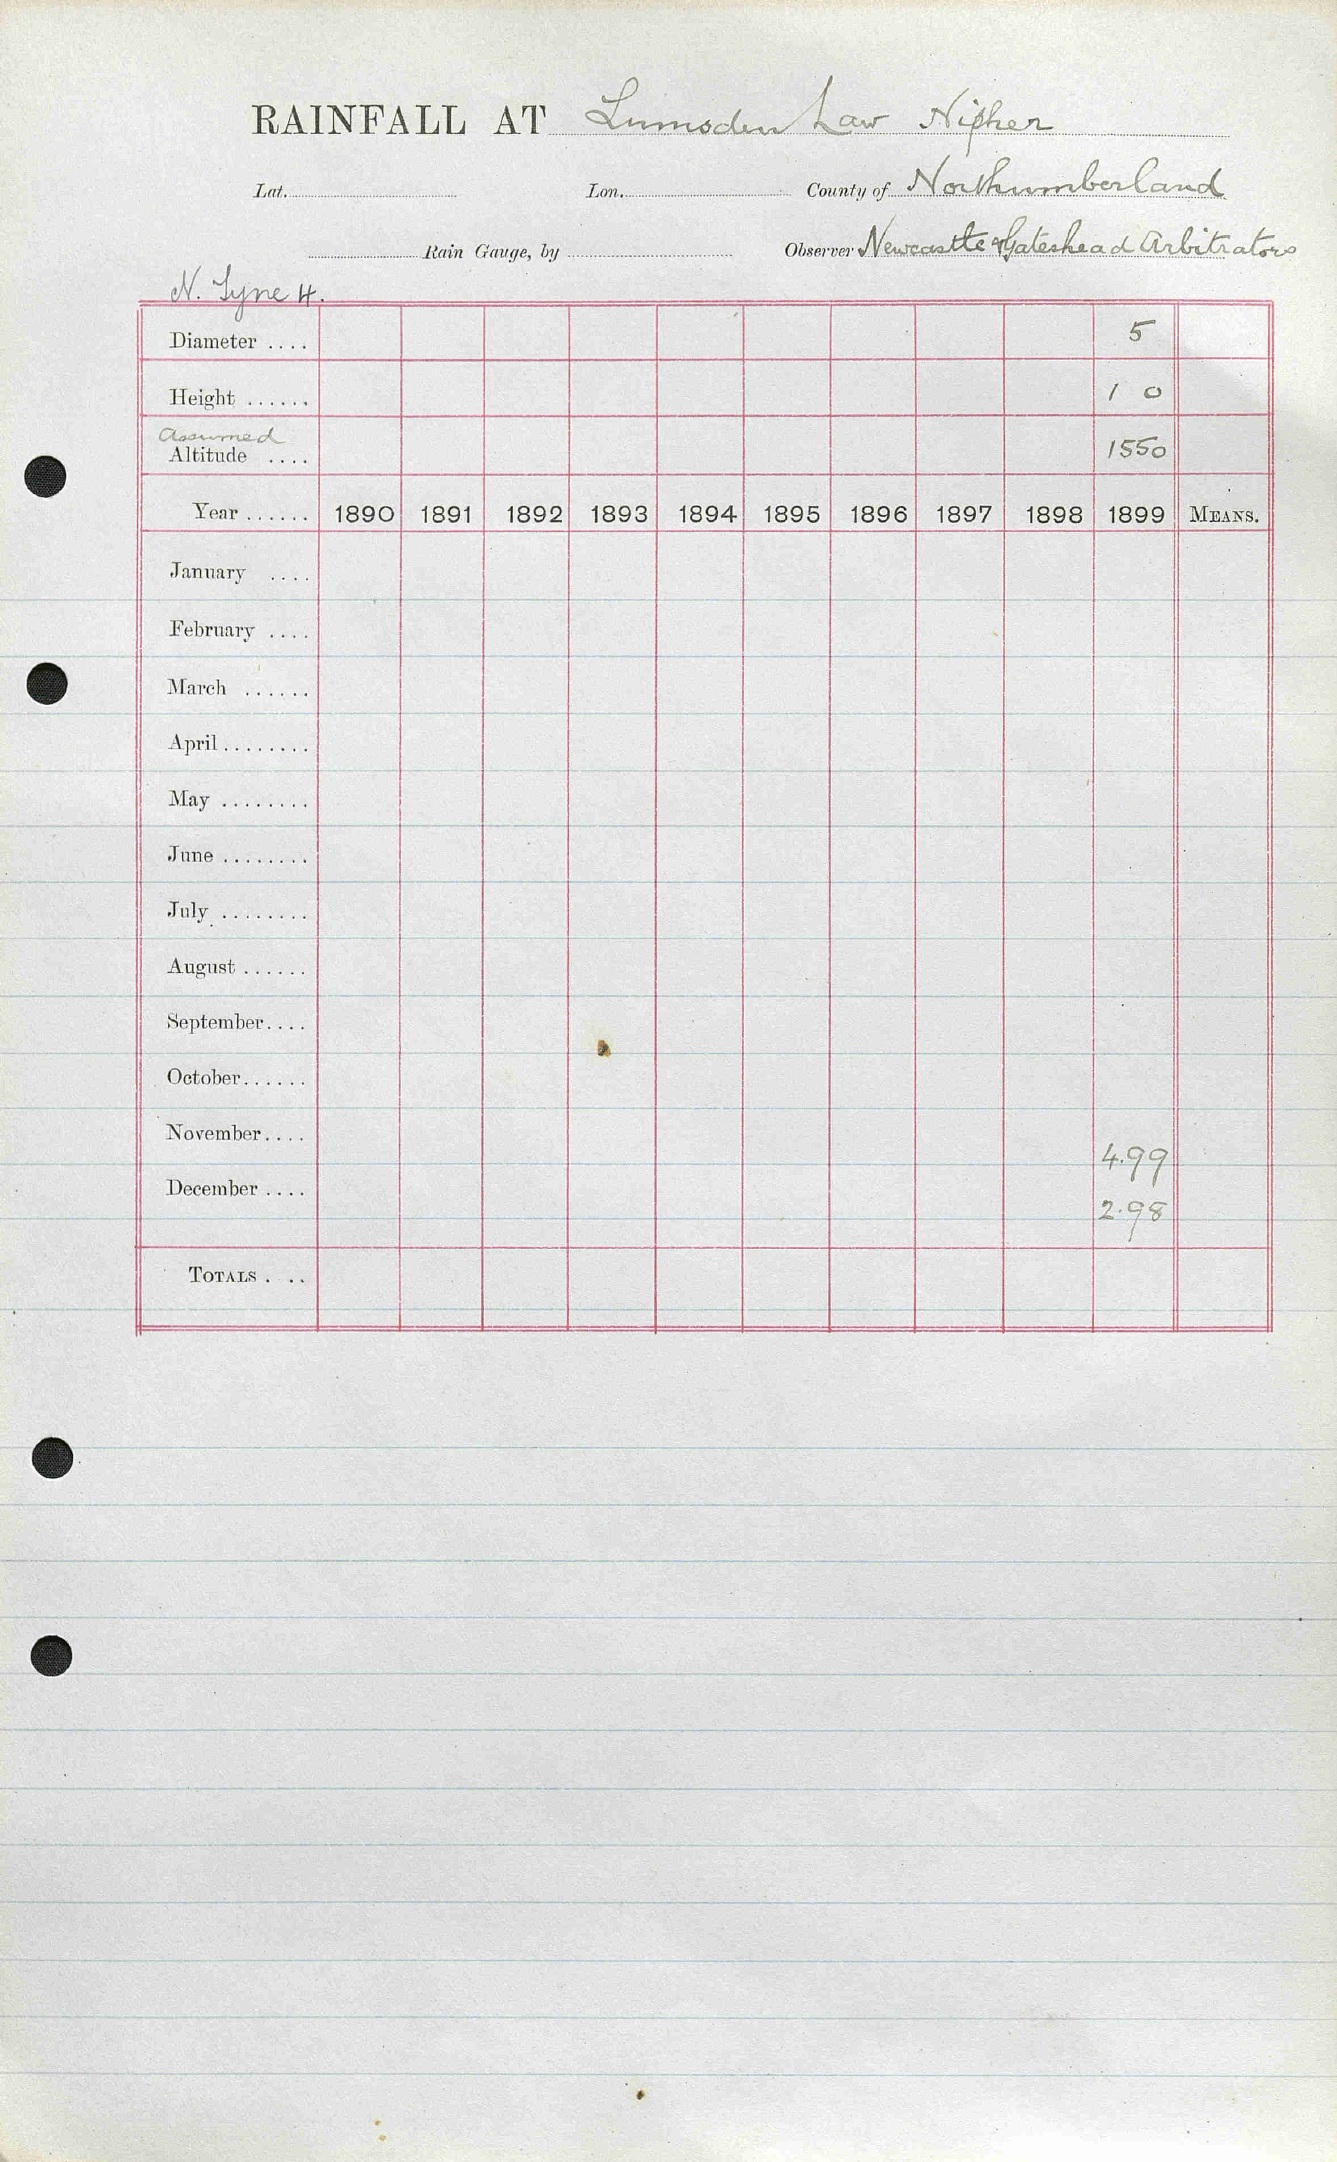 RAINFALL AT Lumsden Law Nipher
Lat. Lon. County of Northumberland
Rain Gauge, by Observer Newcastle & Gateshead Arbitrators
N. Tyne 4.
Diameter .... 5
Height ...... 1 0
Assumed
Altitude .... 1550
Year ...... 1890 1891 1892 1893 1894 1895 1896 1897 1898 1899 MEANS.
January ....
February ....
March ......
April ........
May ........
June ........
July ........
August ......
September ....
October ......
November .... 4.99
December .... 2.98
TOTALS . ..